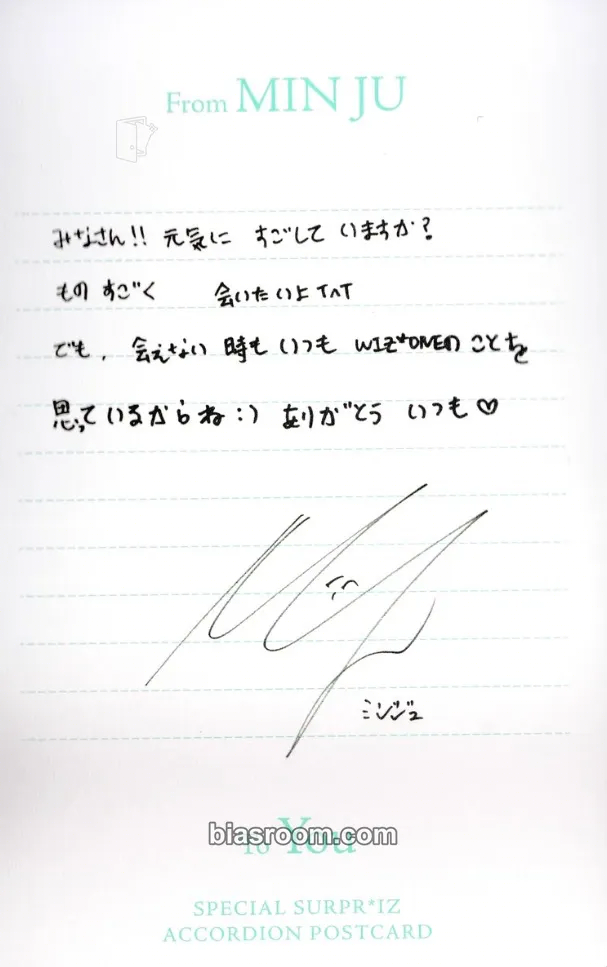 From MIN JU
みなさん!! 元気に すごして いますか?
もの すごく 会いたいよ T^T
でも, 会えない 時も いつも WIZ*ONEの ことを
思っているからね :) ありがとう いつも♡
ミンジュ
To You
biasroom.com
SPECIAL SURPR*IZ
ACCORDION POSTCARD